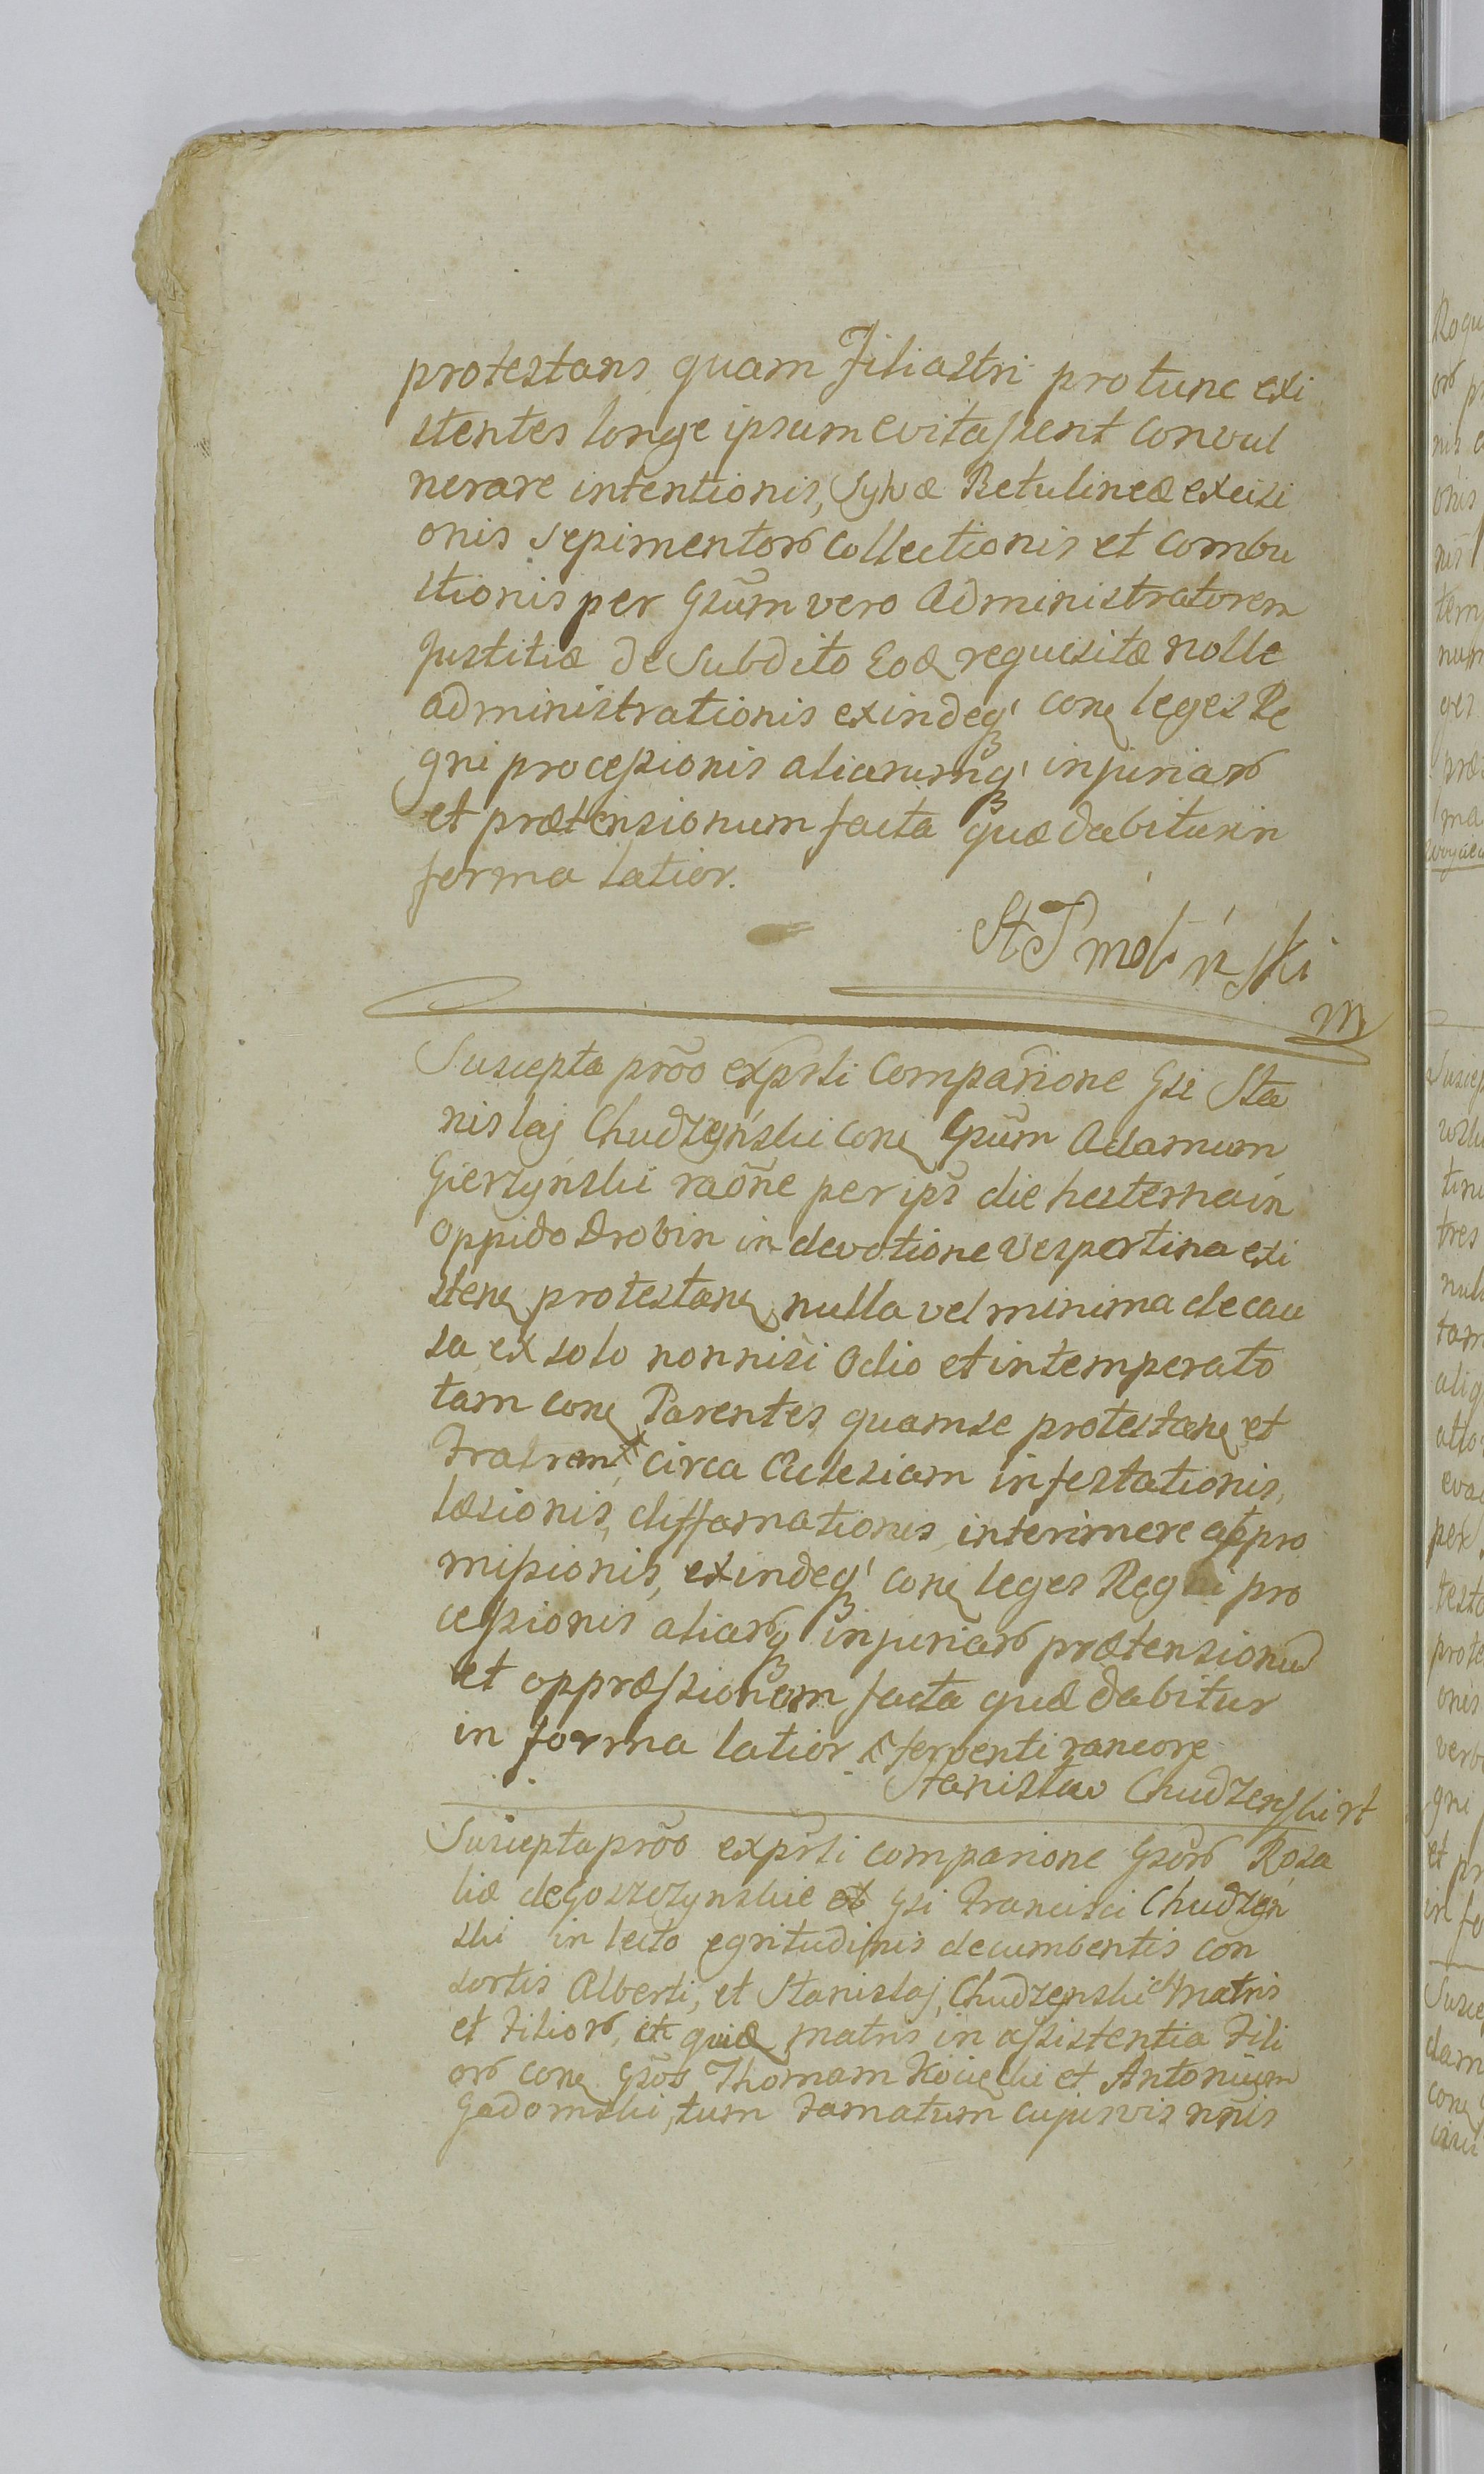 protestans quam Filiastri protunc exi
stentes longe ipsum evitassent convul
nerare intentionis, Sylvæ Betulineæ excisi
onis sepimentorō collectionis et combu
stionis per Gsūm vero Administratorem
Justitiæ de Subdito Eoq requisitæ nolle
administrationis exindeq' conq leges Re
gni processionis aliarumq' injuriarō
et prætensionum facta quæ dabitur in
forma latior.
Suscepta prōo exprsti Comparīone Gsi Sta
nislaj Chudzyński conq Gsūm Adamum
Gierzyński raōne per ips̄ die hesterna in
oppido Drobin in devotione Vespertina exi
stenq protestanq nulla vel minima de cau
sa ex solo nonnisi odio et intemperato
tam conq Parentes quam se protestanq et
Fratrem circa Ecclesiam infestationis,
læsionis, diffamationis, interimere appro
missionis, exindeq' conq leges Regni pro
cessionis aliarōq injuriarō prætensionū
et oppræssionem facta quæ dabitur
in forma latior ferventi rancore
Stanislaw Chudzenski
Suscepta prōo exprsti comparione Gsorō Rosa
liæ de Goszczynskie et Gsi Francisci Chudzen
ski in lecto egritudinis decumbentis con
sortis Alberti, et Stanislaj Chudzenski Matris
et Filiorō, quiq matris in assistentia Fili
orō conq Gsōs Thomam Kociecki et Antonium
Gadomski, tum Famatum cujusvis nn̄is